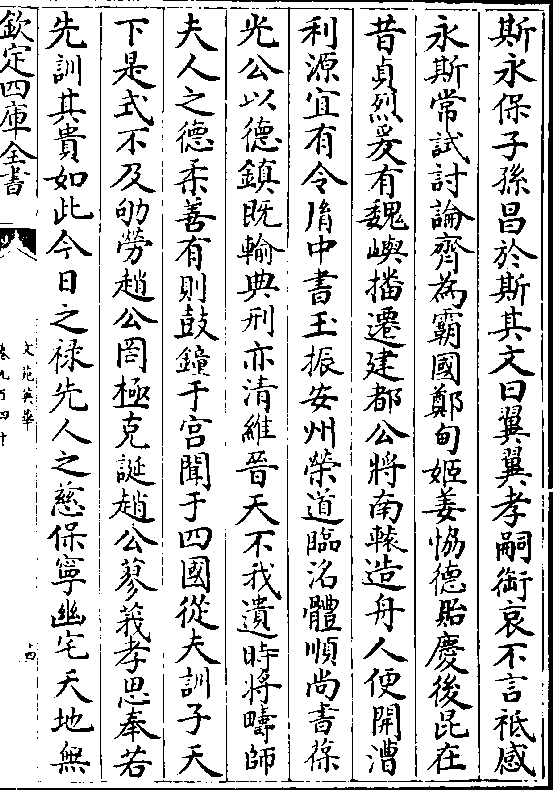 斯永保子孫昌於斯其文曰翼翼孝嗣銜哀不言祗感
永斯常試討論齊為霸國鄭甸姬姜恊德貽慶後昆在
昔貞烈爰有魏嶼播遷建都公將南轅造舟人便開漕
利源宜有令脩中書玉振安州榮道臨洺體順尚書葆
光公以德鎮既輸典刑亦清維晉天不我遺時將疇師
夫人之德柔善有則鼓鐘于宫聞于四國從夫訓子天
下是式不及劬勞趙公罔極克誕趙公蓼莪孝思奉若
先訓其貴如此今日之禄先人之慈保寧幽宅天地無
欽定四庫全書
文苑英華
卷九百四十